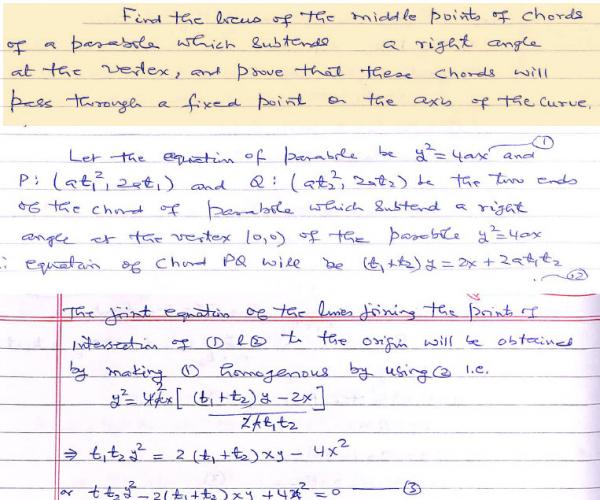 Find the locus of the middle points of chords
of a parabola which subtends a right angle
at the vertex, and prove that these chords will
pass through a fixed point on the axis of the curve.
Let the equation of parabola be y²=4ax — ① and
P: (at₁², 2at₁) and Q: (at₂², 2at₂) be the two ends
of the chord of parabola which subtend a right
angle at the vertex (0,0) of the parabola y²=4ax
∴ equation of chord PQ will be (t₁+t₂)y = 2x + 2at₁t₂
— ②
The joint equation of the lines joining the points of
intersection of ① & ② to the origin will be obtained
by making ① homogenous by using ② i.e.
y² = 4ax[(t₁+t₂)y - 2x]
2at₁t₂
⇒ t₁t₂y² = 2(t₁+t₂)xy - 4x²
or t₁t₂y² - 2(t₁+t₂)xy + 4x² = 0 — ③